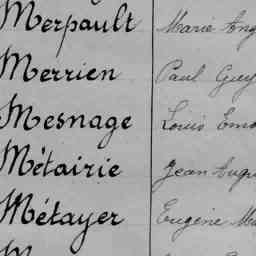 Merpault Marie Ang
Merrien Paul Guy
Mesnage Louis Emo
Métairie Jean Augu
Métayer Eugène